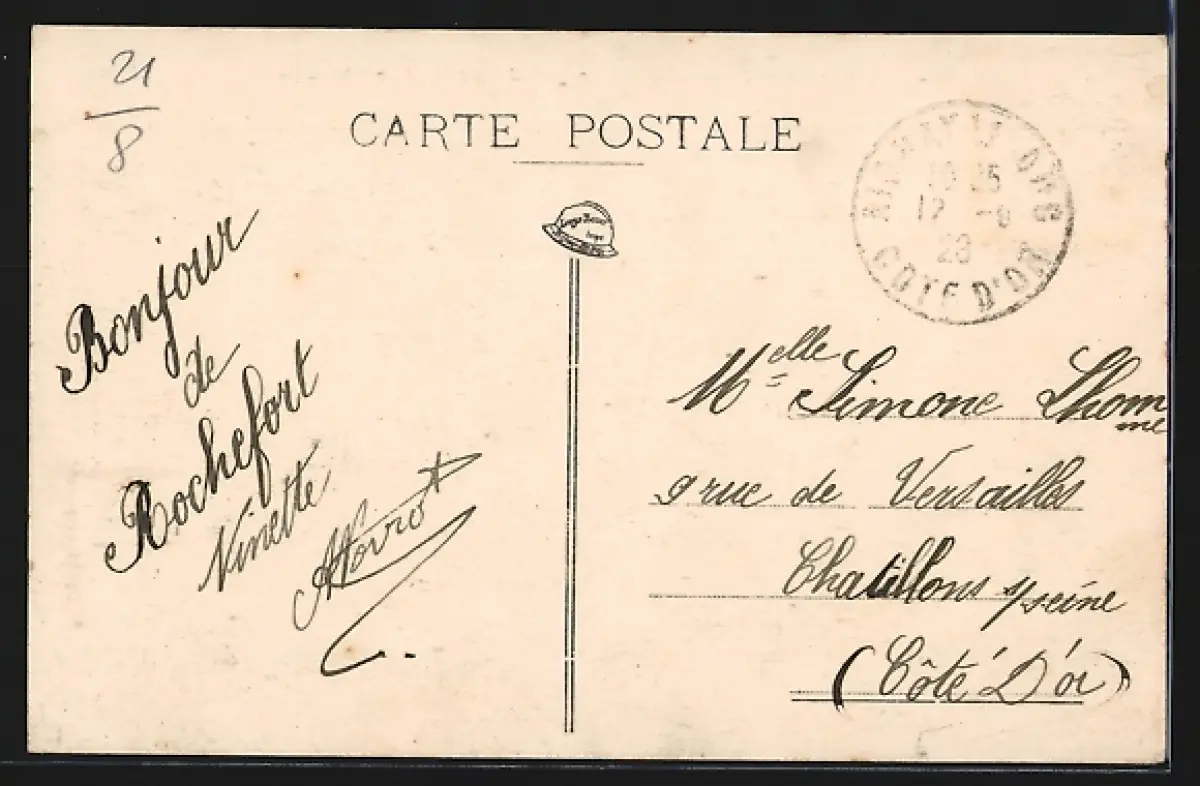 21
8
CARTE POSTALE
COTE D'OR
Bonjour
de
Rochefort
Vinette
Melle Simone Lhom
me
9 rue de Versailles
Chatillons s/seine
(Côte D'or)